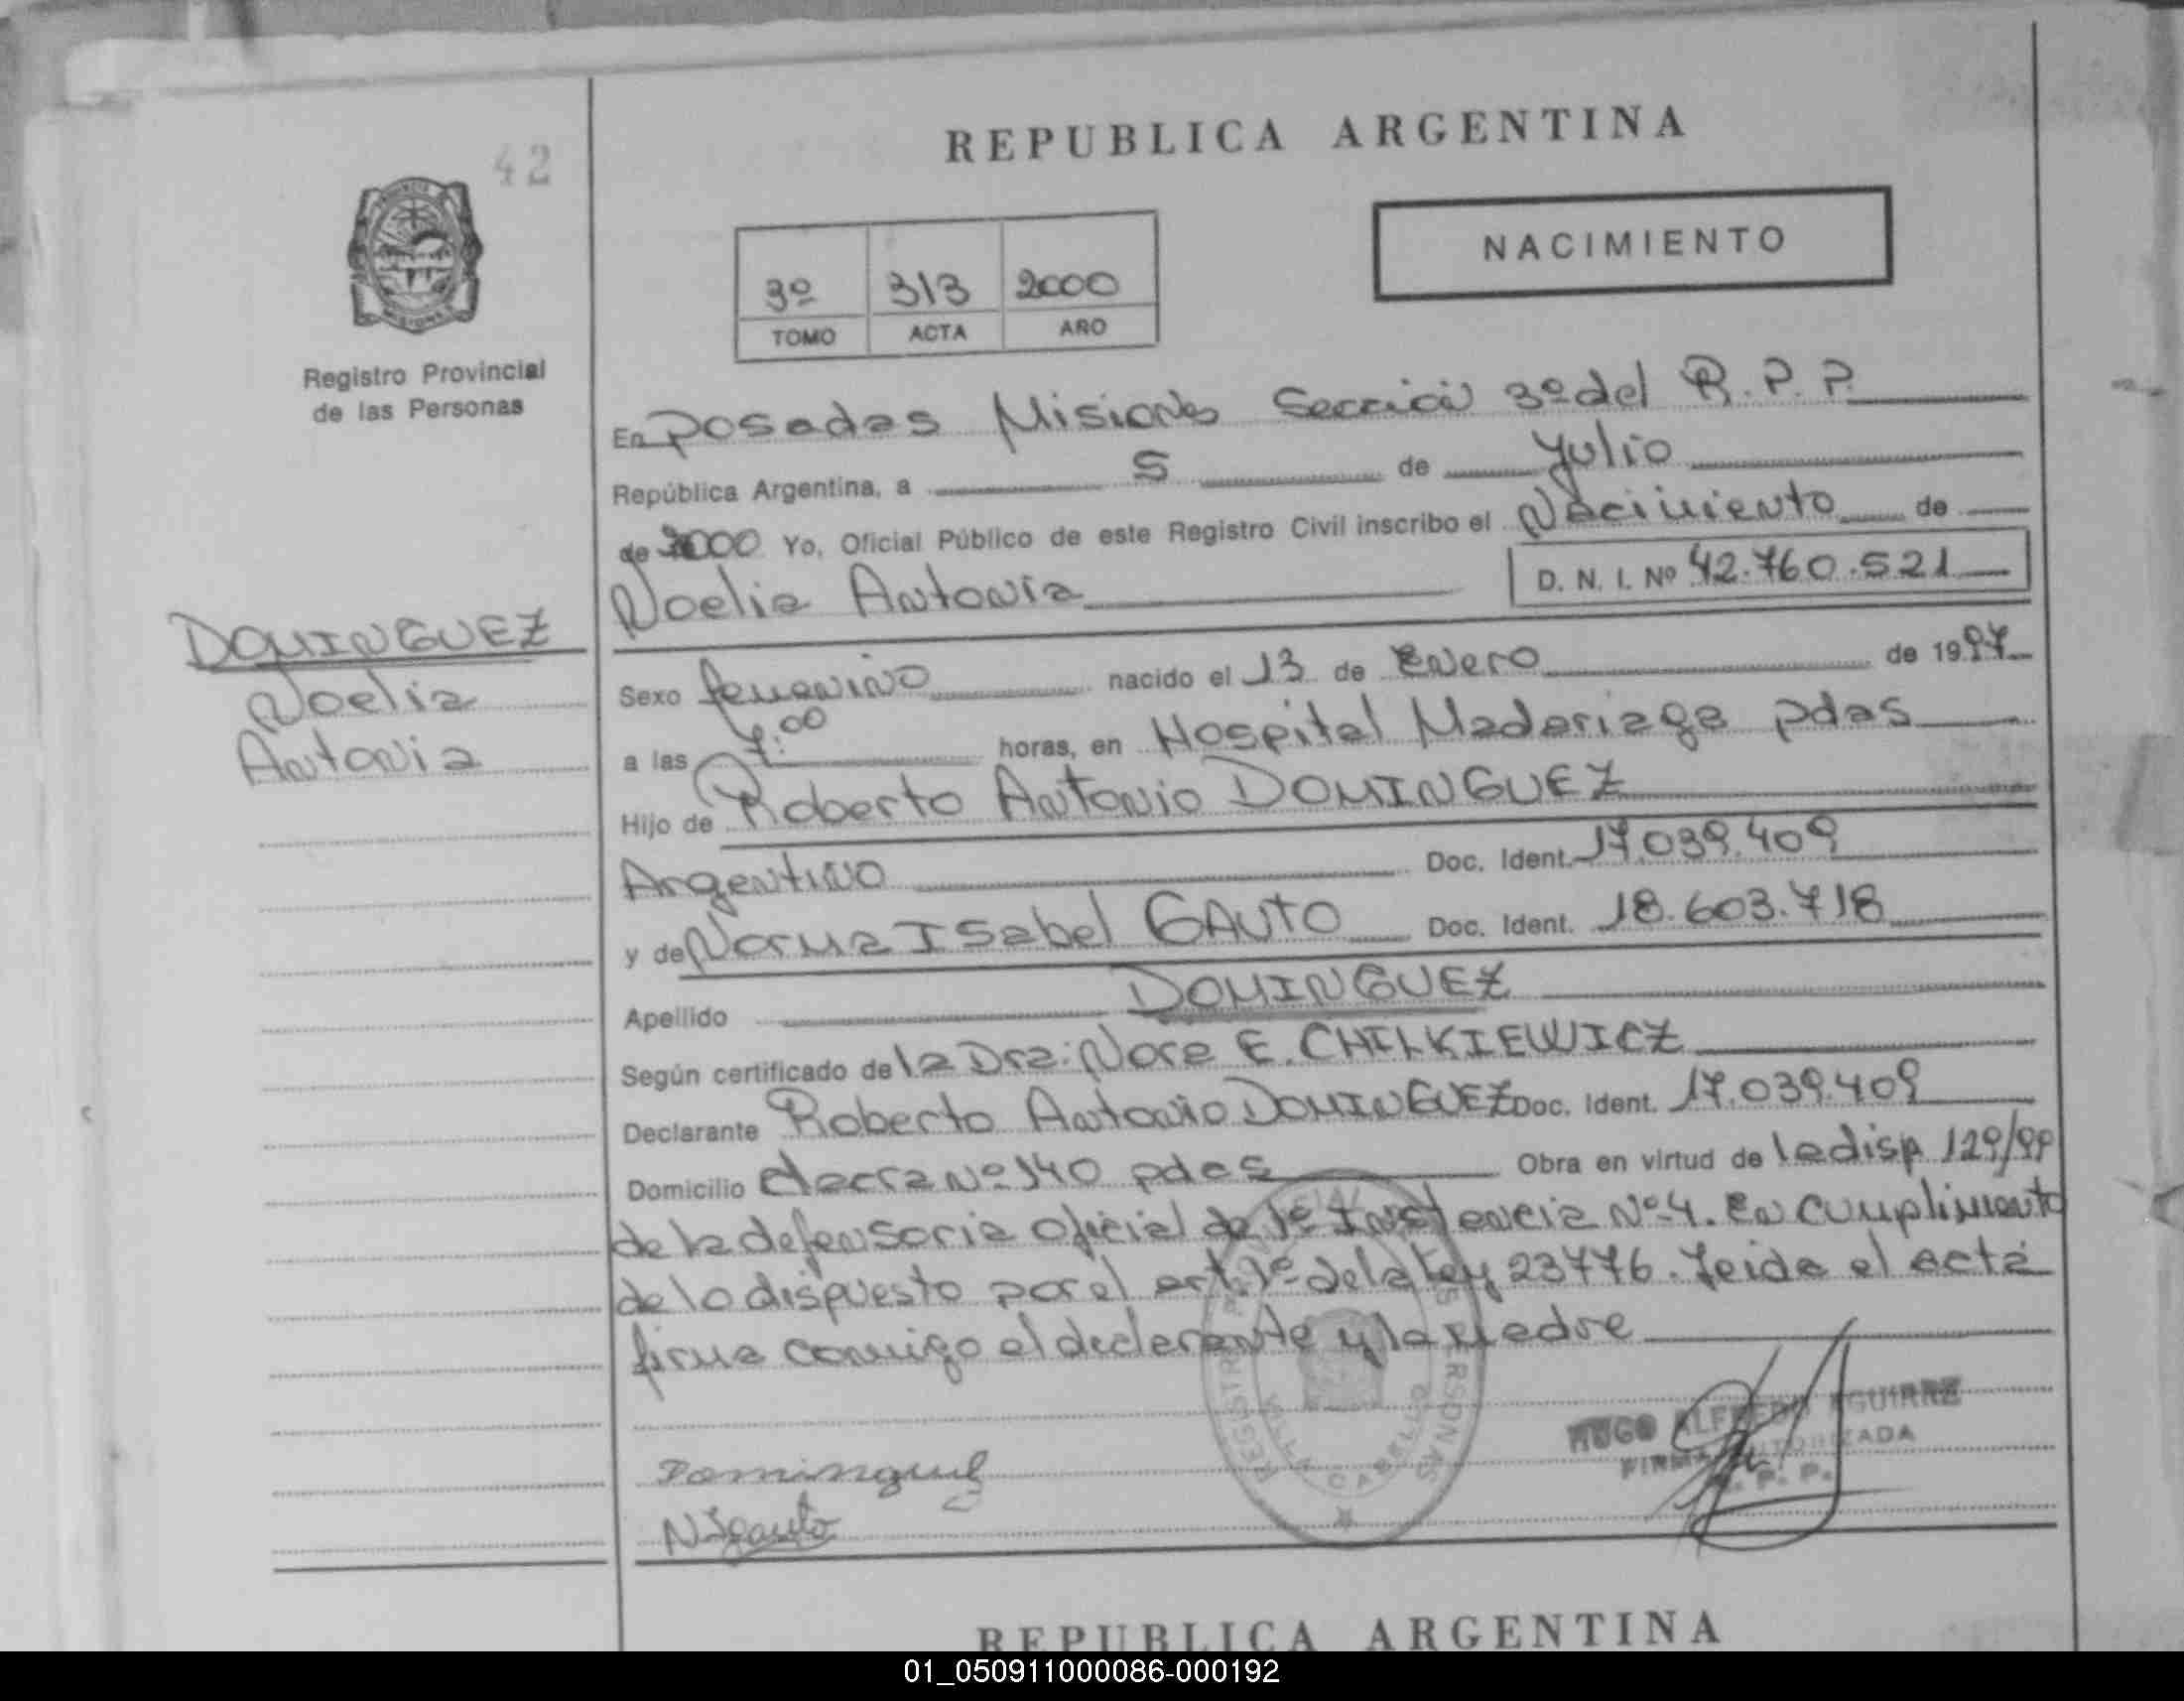 42
REPUBLICA ARGENTINA
NACIMIENTO
3º 313 2000
TOMO ACTA AÑO
Registro Provincial
de las Personas
En Posadas Misiones Sección 3º del R.P.P.
República Argentina, a 5 de Julio
de 2000 Yo, Oficial Público de este Registro Civil inscribo el Nacimiento de
Noelia Antonia D. N. I. Nº 42.760.521
DOMINGUEZ
Noelia
Antonia
Sexo femenino nacido el 13 de Enero de 1997
a las 7:00 horas, en Hospital Madariaga pdas
Hijo de Roberto Antonio DOMINGUEZ
Argentino Doc. Ident. 17.039.409
y de Norma Isabel GAUTO Doc. Ident. 18.603.718
Apellido DOMINGUEZ
Según certificado de la Dra: Nora E. CHILKIEWICZ
Declarante Roberto Antonio DOMINGUEZ Doc. Ident. 17.039.409
Domicilio chacra Nº 140 pdas Obra en virtud de la disp. 129/99
de la defensoria oficial de 1º Instancia Nº 4. En cumplimiento
de lo dispuesto por el art. 1º de la ley 23776. Leida el acta
firma conmigo el declarante y la madre
HUGO ALFREDO AGUIRRE
FIRMA AUTORIZADA
R. P. P.
Dominguez
N I Gauto
VILLA CABELLO
REPUBLICA ARGENTINA
01_050911000086-000192